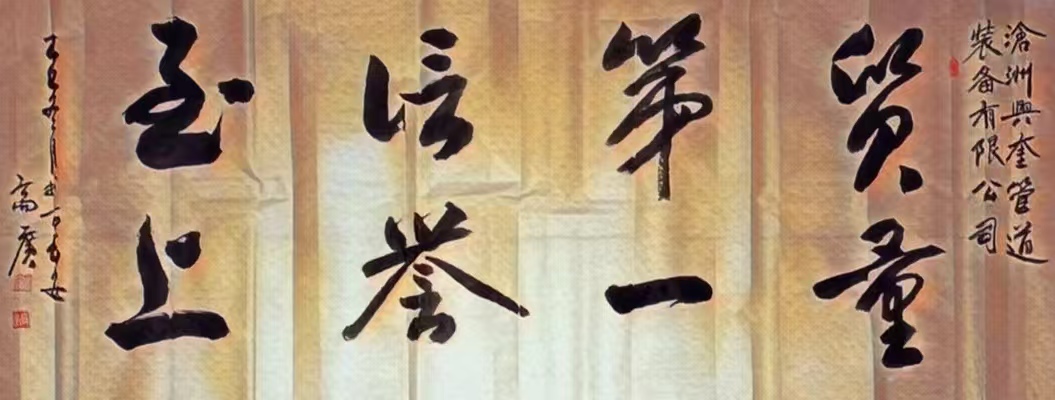 滄洲興奎管道
装备有限公司
質量
第一
信誉
至上